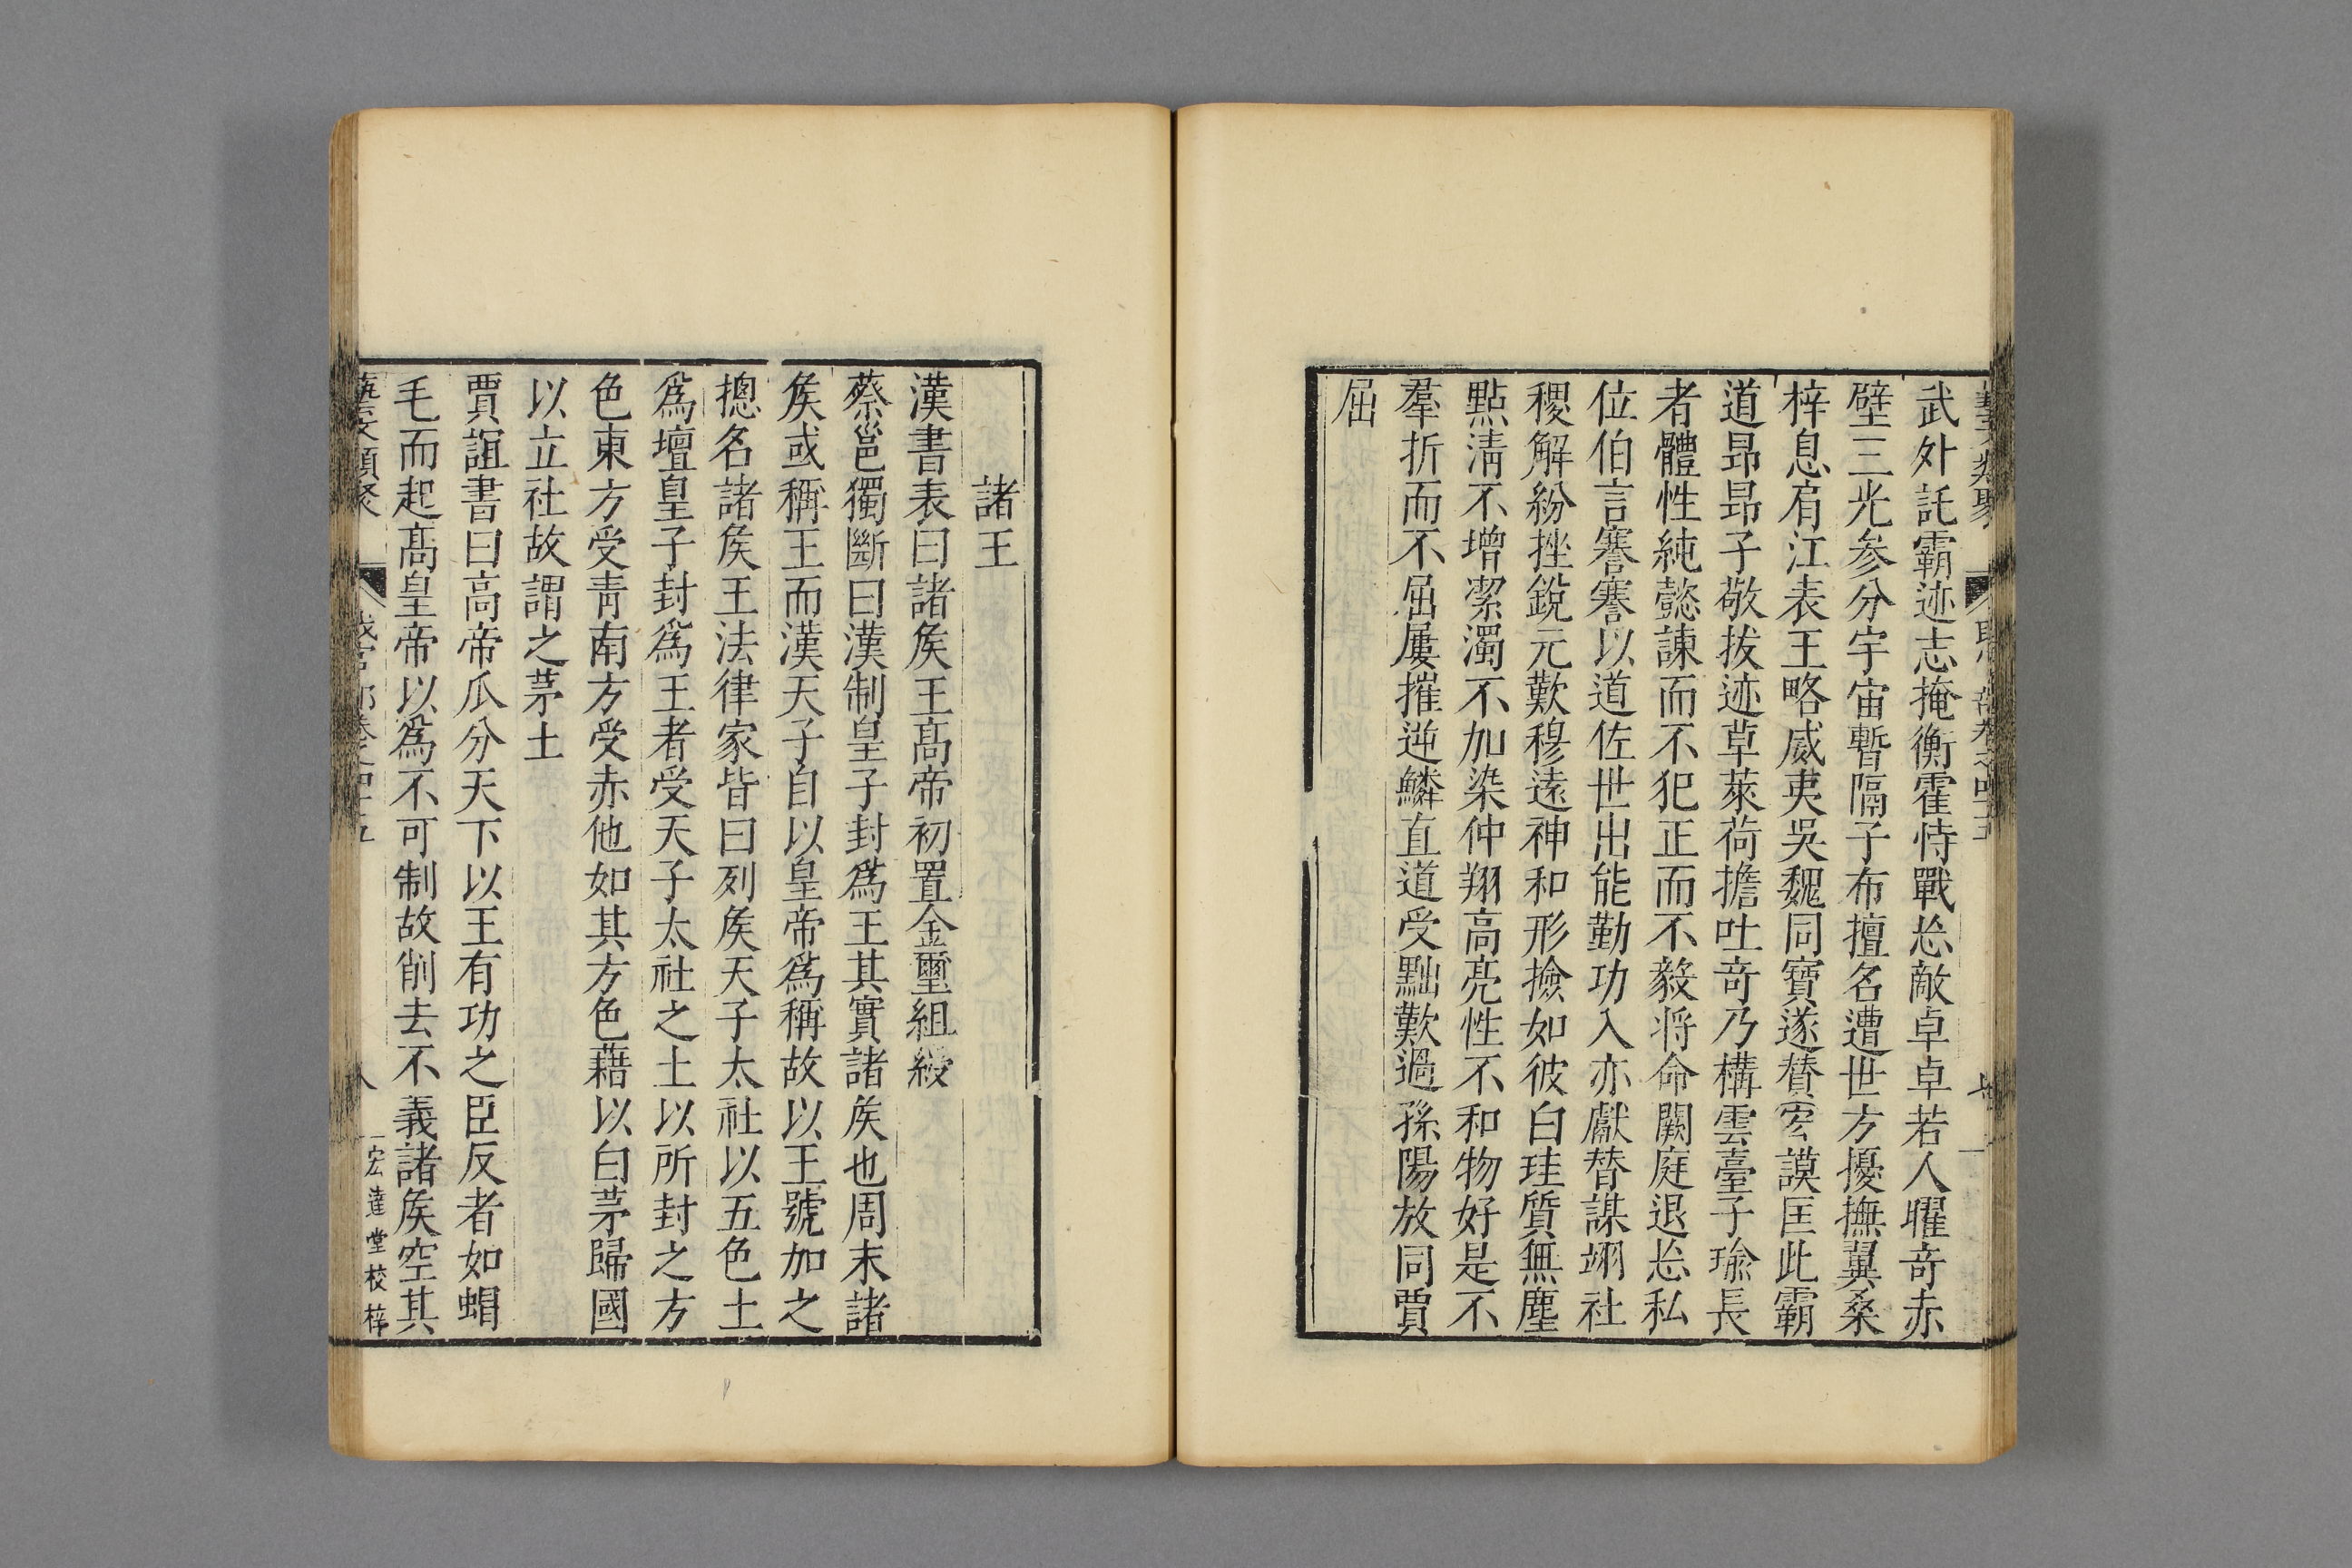 武外託霸迹志掩衡霍恃戰忘敵卓卓若人曜竒赤
壁三光参分宇宙暫隔子布擅名遭世方擾撫翼桑
梓息肩江表王略威夷吳魏同寶遂贊宏謨匡此霸
道昻昻子敬拔迹草萊荷擔吐竒乃構雲臺子瑜長
者體性純懿諫而不犯正而不毅将命闕庭退忘私
位伯言謇謇以道佐世出能勤功入亦獻替謀翊社
稷解紛挫銳元歎穆遠神和形撿如彼白珪質無塵
點清不增潔濁不加染仲翔高亮性不和物好是不
羣折而不屈屢摧逆鱗直道受黜歎過孫陽放同賈
屈
諸王
漢書表曰諸矦王髙帝初置金璽組綬
蔡邕獨斷曰漢制皇子封爲王其實諸矦也周末諸
矦或稱王而漢天子自以皇帝爲稱故以王號加之
摠名諸矦王法律家皆曰列矦天子太社以五色土
爲壇皇子封爲王者受天子太社之土以所封之方
色東方受青南方受赤他如其方色藉以白茅歸國
以立社故謂之茅土
賈誼書曰高帝瓜分天下以王有功之臣反者如蝟
毛而起髙皇帝以爲不可制故削去不義諸矦空其
八
宏達堂校梓